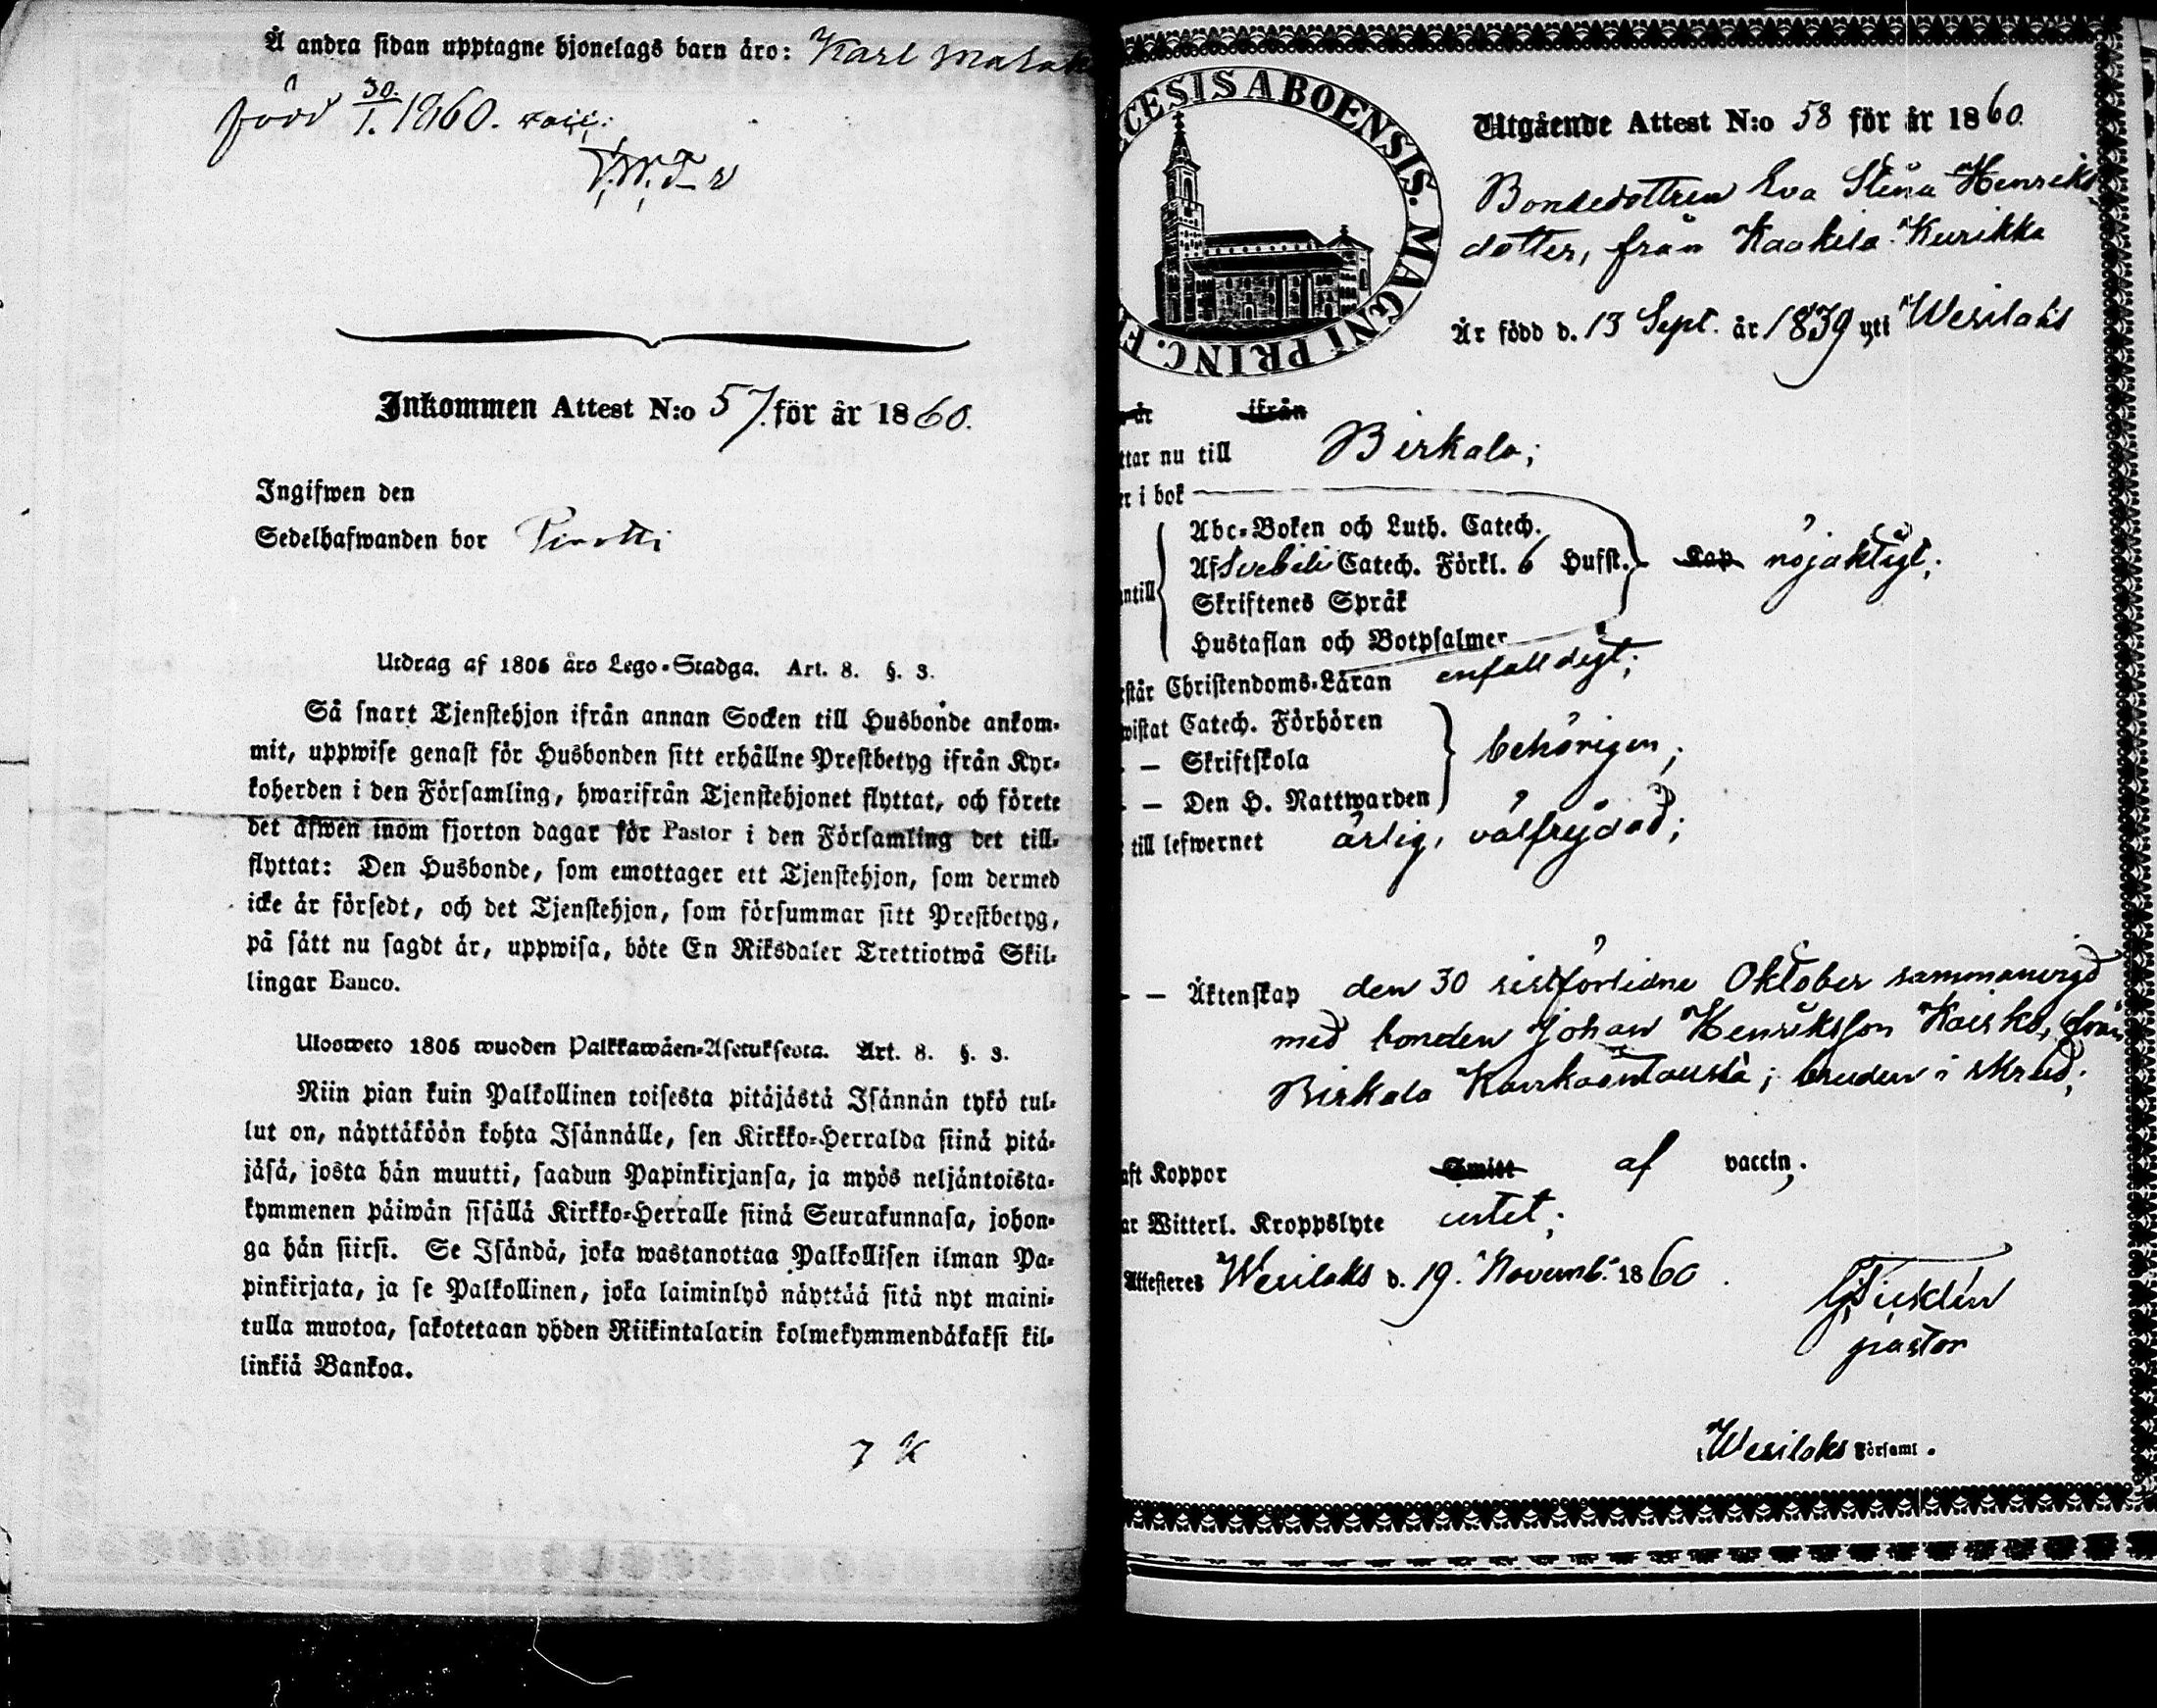 Å andra sidan upptagne hjonelags barn äro: Karl
född 30/1. 1860. vacc:
Inkommen Attest N:o 57. för år 1860.
Ingifwen den
Sedelhafwanden bor Pirotti
Utdrag af 1805 års Lego-Stadga. Art. 8. §. 3.
Så snart Tjenstehjon ifrån annan Socken till Husbonde ankom-
mit, uppwise genast för Husbonden sitt erhållne Prestbetyg ifrån Kyr-
koherden i den Församling, hwarifrån Tjenstehjonet flyttat, och förete
det äfwen inom fjorton dagar för Pastor i den Församling det till-
flyttat: Den Husbonde, som emottager ett Tjenstehjon, som dermed
icke är försedt, och det Tjenstehjon, som försummar sitt Prestbetyg,
på sätt nu sagdt är, uppwisa, böte En Riksdaler Trettiotwå Skil-
lingar Banco.
Ulosweto 1805 wuoden Palkkawäen-Asetuksesta. Art. 8. §. 3.
Niin pian kuin Palkollinen toisesta pitäjästä Isännän tykö tul-
lut on, näyttäköön kohta Isännälle, sen Kirkko-Herralda siinä pitä-
jäsä, josta hän muutti, saadun Papinkirjansa, ja myös neljäntoista-
kymmenen päiwän sisällä Kirkko-Herralle siinä Seurakunnasa, johon-
ga hän siirsi. Se Isändä, joka wastanottaa Palkollisen ilman Pa-
pinkirjata, ja se Palkollinen, joka laiminlyö näyttää sitä nyt maini-
tulla muotoa, sakotetaan yhden Riikintalarin kolmekymmendäkaksi kil-
linkiä Bankoa.
7 K
CESIS ABOENSIS. MAGNI PRINC. F
Utgående Attest N:o 58 för år 1860.
Bondedottren Eva Stina Henriks
dotter, från Kaakila Kurikka
Är född d. 13 Sept. år 1839 uti Wesilaks
år ifrån
ttar nu till Birkala;
er i bok
Abc-Boken och Luth. Catech.
Af Svebelii Catech. Förkl. 6 Hufst. Kap nöjaktigt;
antill Skriftenes Språk
Hustaflan och Botpsalmer
står Christendoms-Läran enfalldigt;
wistat Catech. Förhören
- — Skriftskola behörigen;
- — Den H. Nattwarden
till lefwernet ärlig, välfrejdad;
- — Äktenskap den 30 sistförlidne Oktober sammanvigd
med bonden Johan Henriksson Koisko, från
Birkala Kaukaantausta; bruden i skrud;
aft Koppor Smitt af vaccin;
ar Witterl. Kroppslyte intet;
Attesteres Wesilaks d. 19. Novemb. 1860.
pastor
Wesilaks Församl.